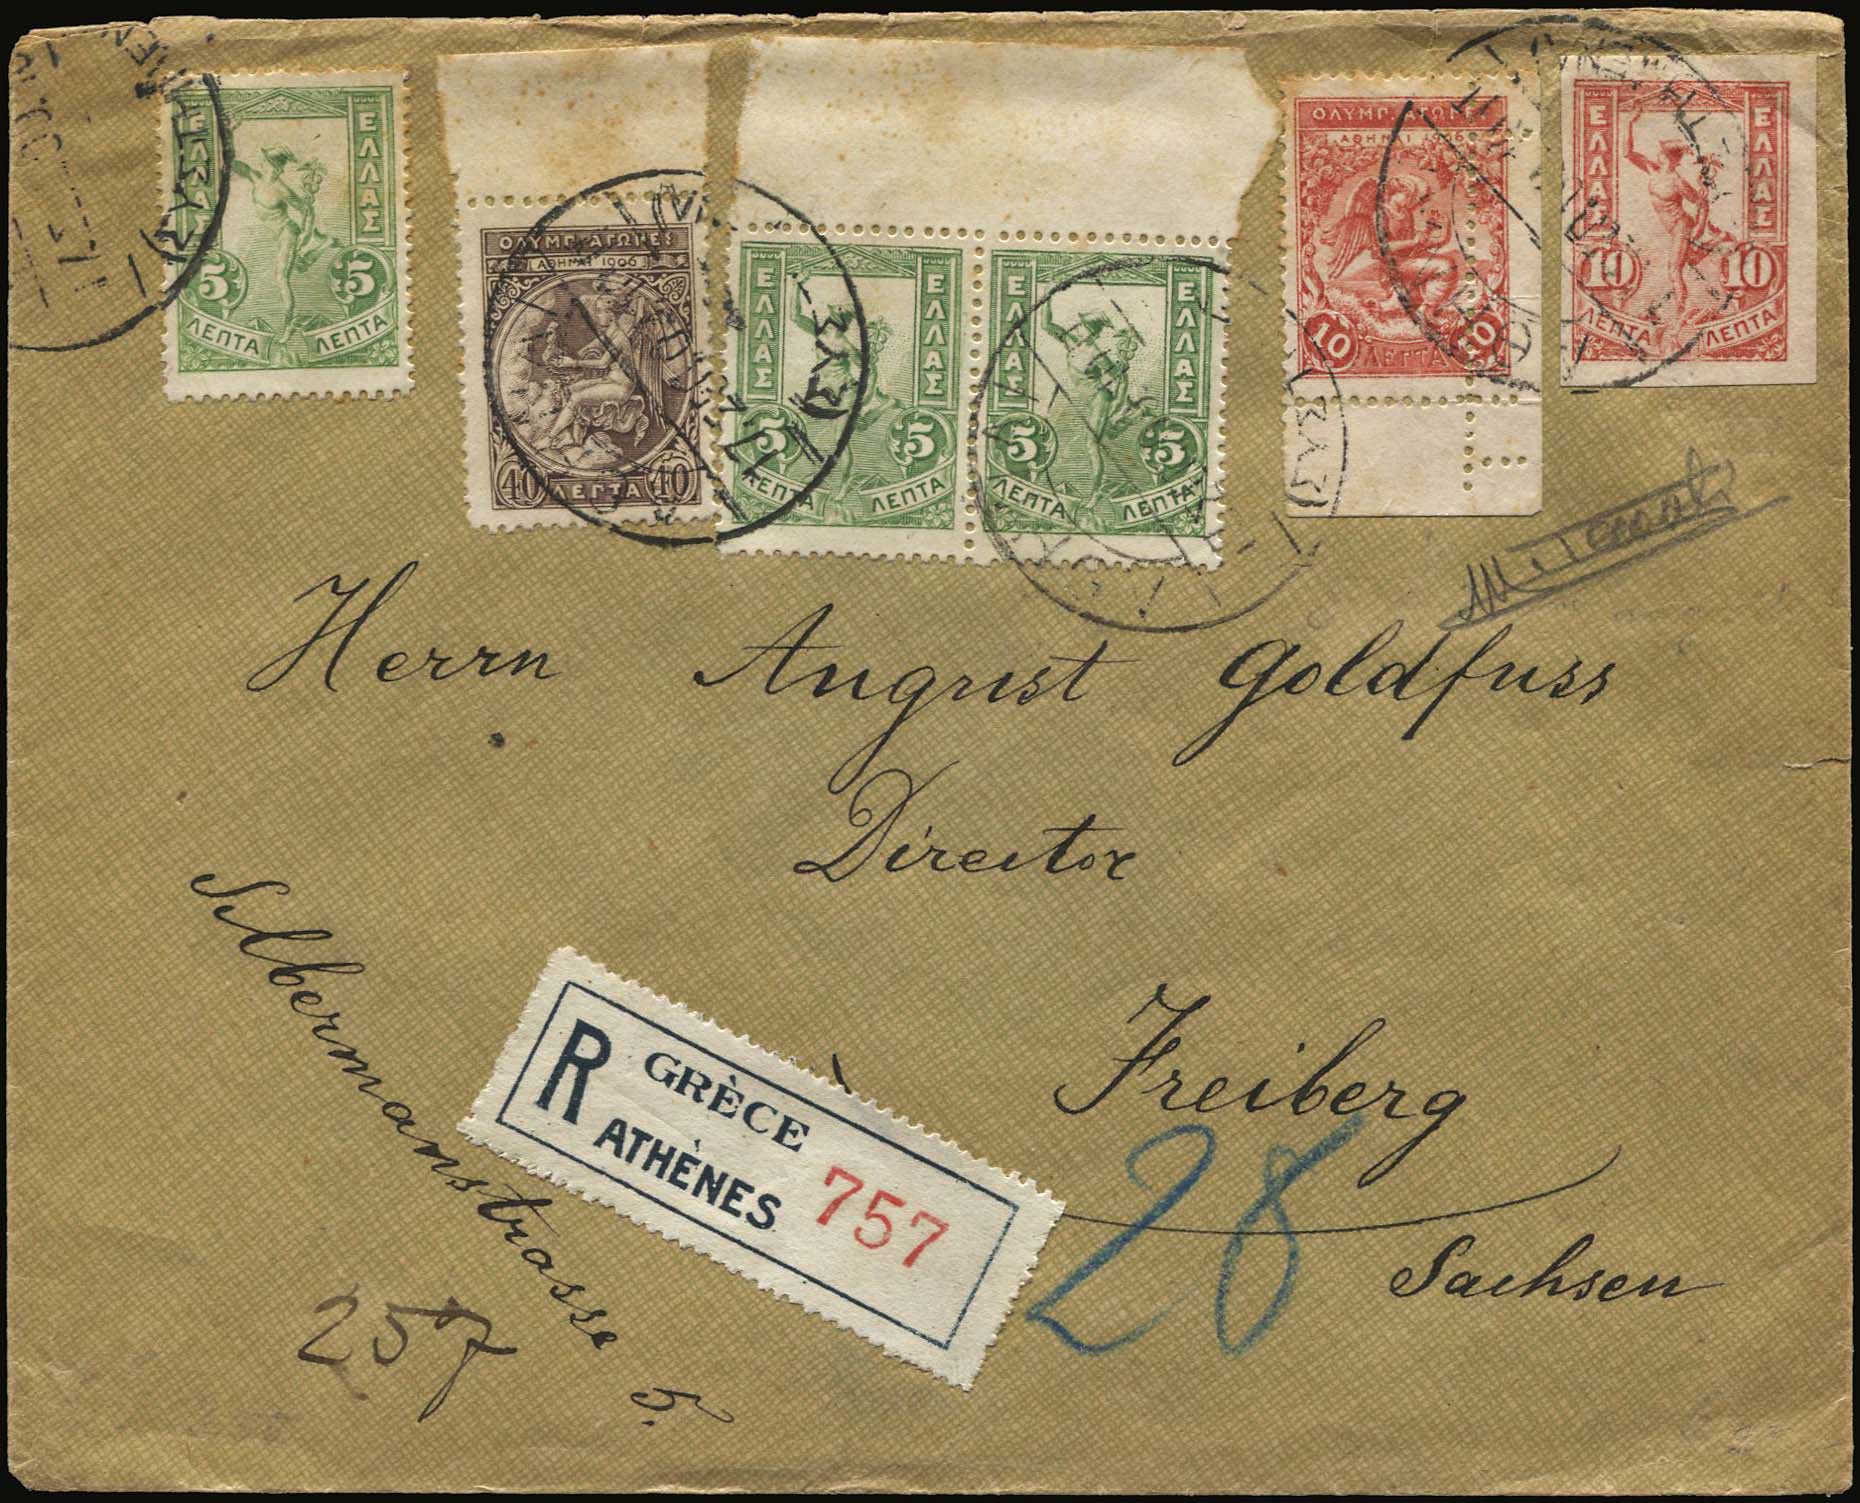 ΕΛΛΑΣ ΕΛΛΑΣ
5 5
ΛΕΠΤΑ ΛΕΠΤΑ
ΟΛΥΜΠ·ΑΓΩΝΕΣ
ΑΘΗΝΑΙ 1906
40 ΛΕΠΤΑ 40
ΕΛΛΑΣ ΕΛΛΑΣ
5 5
ΛΕΠΤΑ ΛΕΠΤΑ
ΕΛΛΑΣ ΕΛΛΑΣ
5 5
ΛΕΠΤΑ ΛΕΠΤΑ
ΟΛΥΜΠ·ΑΓΩΝΕΣ
ΑΘΗΝΑΙ 1906
10 ΛΕΠΤΑ 10
ΕΛΛΑΣ ΕΛΛΑΣ
10 10
ΛΕΠΤΑ ΛΕΠΤΑ
(ΣΥΣΤ
(ΣΥΣ
(ΣΥΣΤ
Herrn August Goldfuss
Director
Freiberg
Sachsen
Silbermanstrasse 5.
R GRÈCE
ATHÈNES 757
28
257